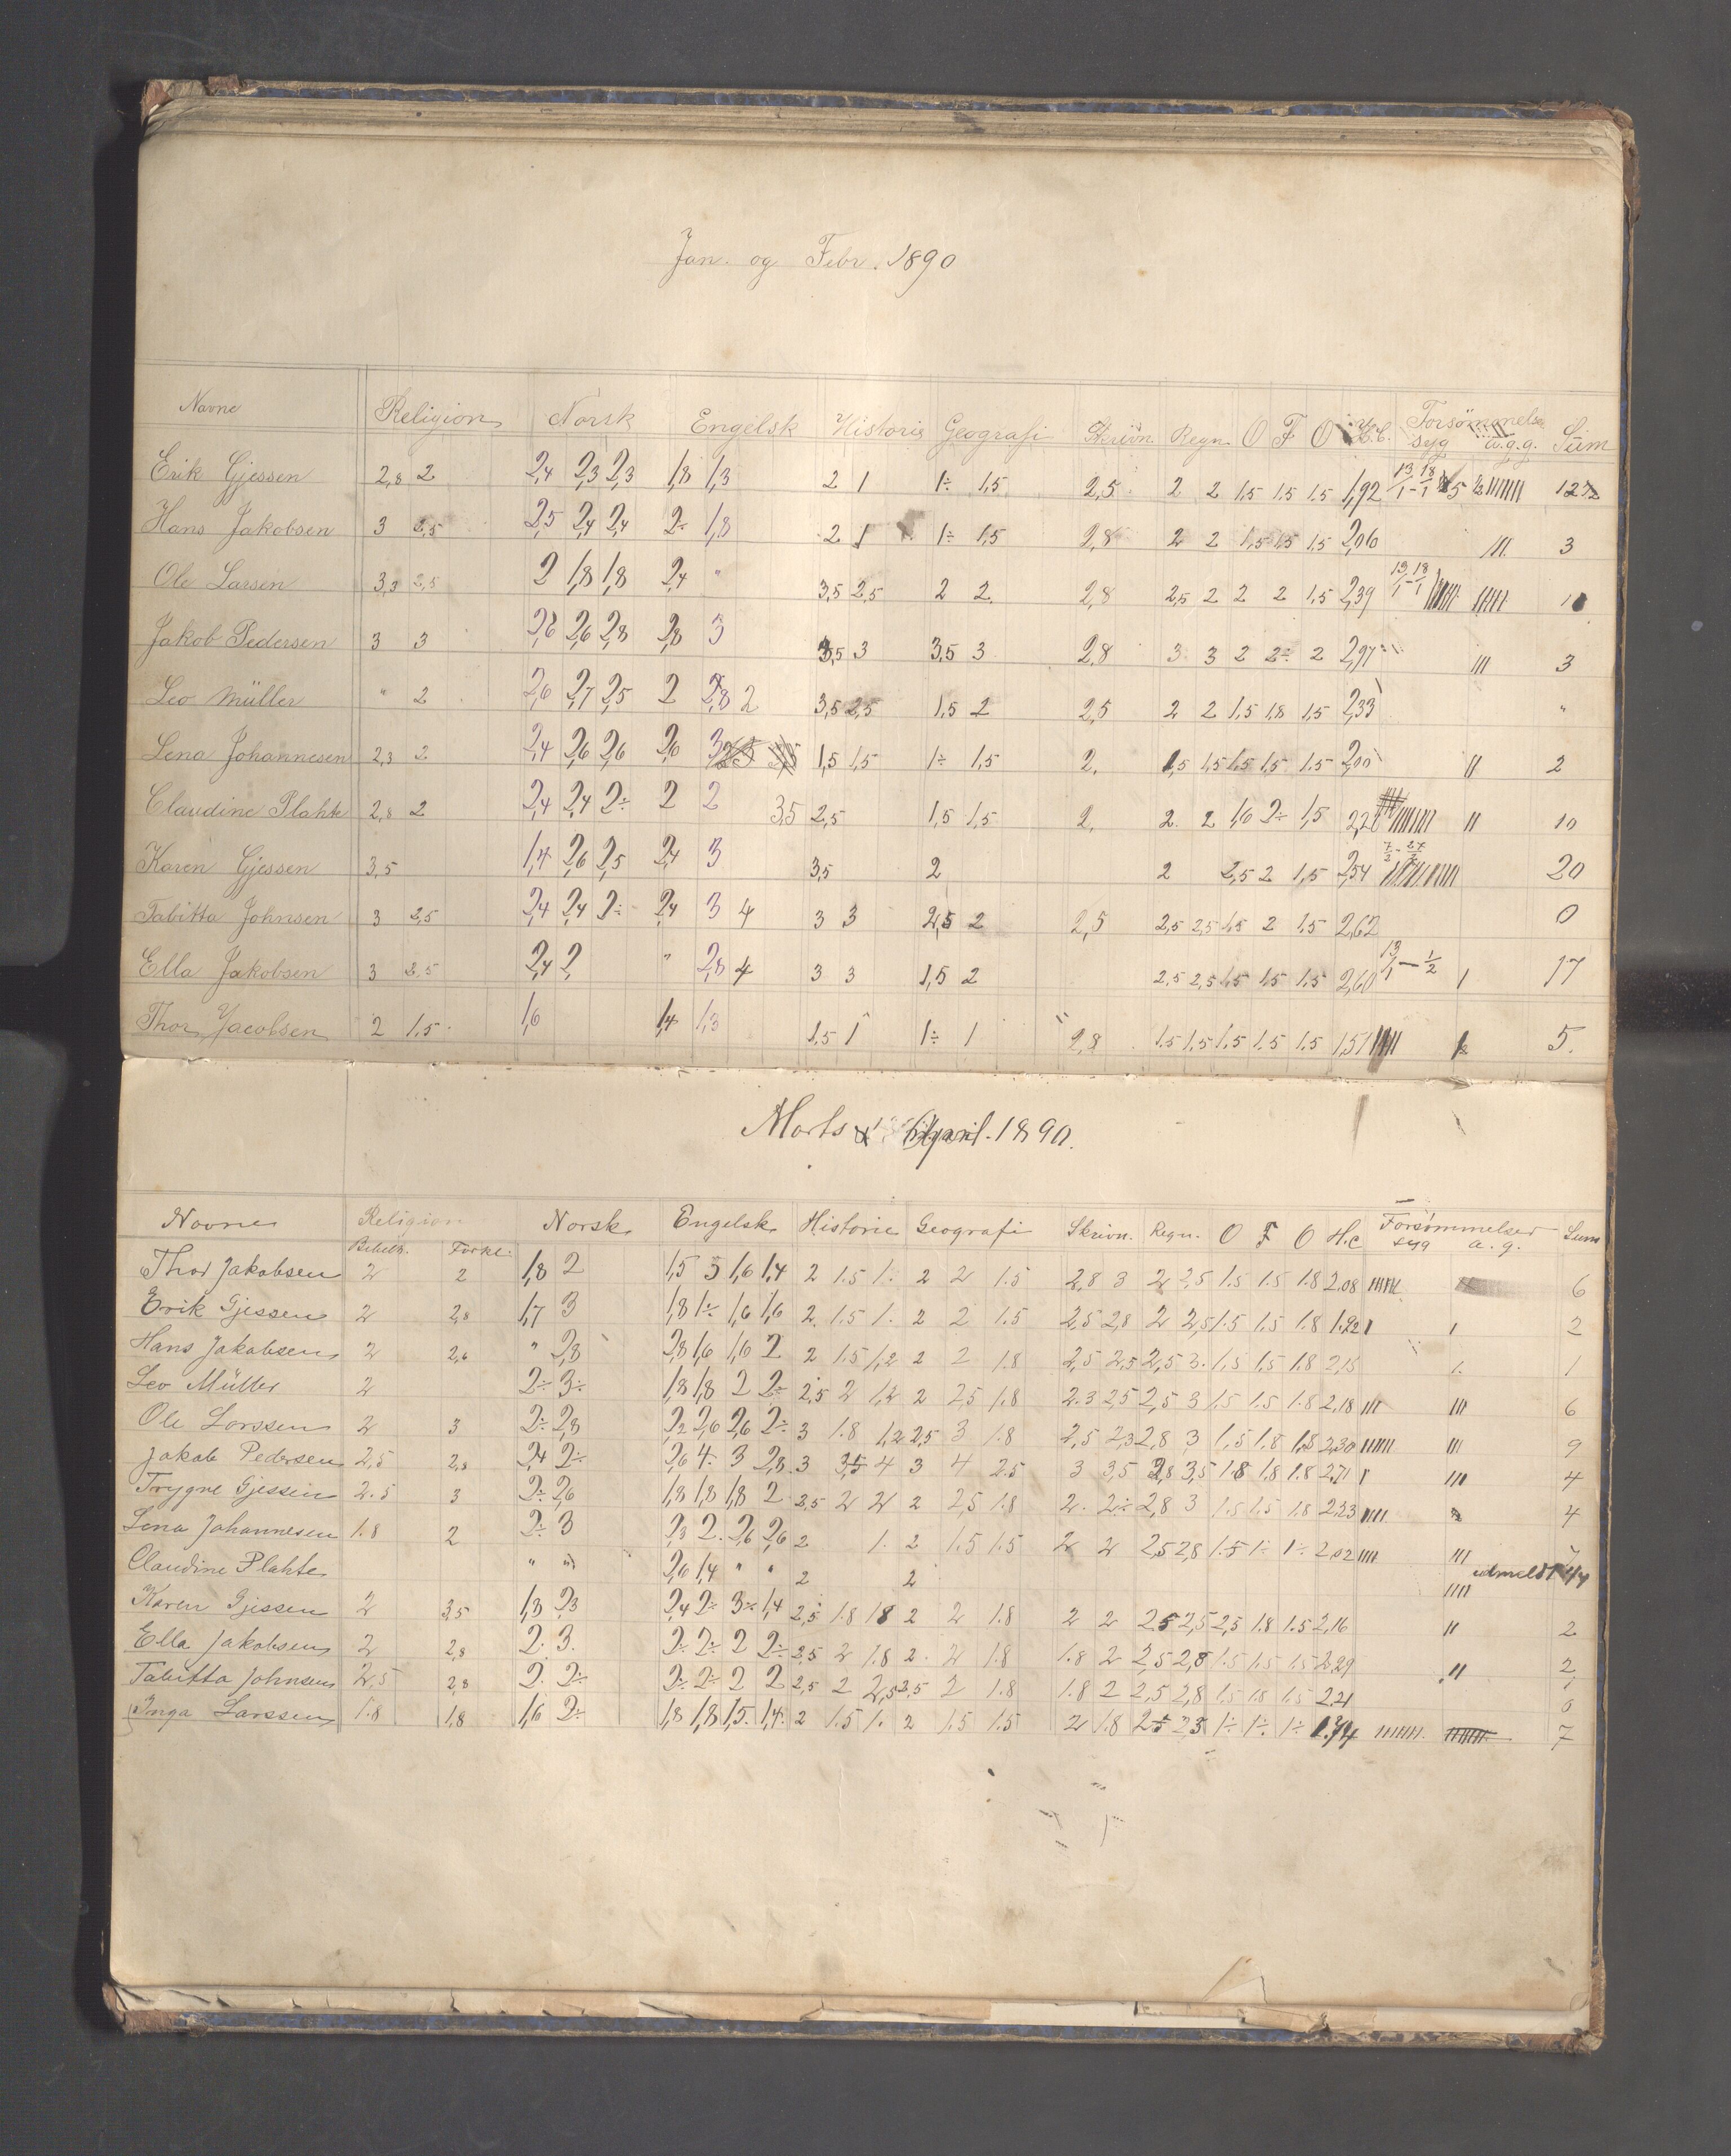 Jan. og Febr. 1890
Navne Religion Norsk Engelsk Historie Geografi Skrivn. Regn. O F O H.C. Forsömmelse syg a.g.g. Sum
Erik Gjessen 2,8 2 2,4 2,3 2,3 1,8 1,3 2 1 1÷ 1,5 2,5 2 2 1,5 1,5 1,5 1,92
Hans Jakobsen 3 2,5 2,5 2,4 2,4 2÷ 1,8 2 1 1÷ 1,5 2,8 2 2 1,5 1,5 1,5 2,06 III 3
Ole Larsen 3,3 2,5 2 1,8 1,8 2,4 " 3,5 2,5 2 2. 2,8 2,5 2 2 2 1,5 2,39
Jakob Pedersen 3 3 2,6 2,6 2,8 2,8 3 3,5 3 3,5 3 2,8 3 3 2 2÷ 2 2,97 III 3
Leo Müller " 2 2,6 2,7 2,5 2 2,8 2 3,5 2,5 1,5 2 2,5 2 2 1,5 1,8 1,5 2,33 "
Lena Johannesen 2,3 2 2,4 2,6 2,6 2,6 3 1,5 1,5 1÷ 1,5 2. 1,5 1,5 1,5 1,5 1,5 2,00 II 2
Claudine Plahte 2,8 2 2,4 2,4 2÷ 2 2 3,5 2,5 1,5 1,5 2. 2. 2 1,6 2÷ 1,5 II 10
Karen Gjessen 3,5 1,4 2,6 2,5 2,4 3 3,5 2 2 2,5 2 1,5 2,54 20
Tabitta Johnsen 3 2,5 2,4 2,4 2÷ 2,4 3 4 3 3 2,5 2 2,5 2,5 2,5 1,5 2 1,5 2,62 0
Ella Jakobsen 3 2,5 2,4 2, " 2,8 4 3 3 1,5 2 2,5 2,5 1,5 1,5 1,5 2,60 13/1 — 1/2 I 17
Thor Jacobsen 2 1,5. 1,6 1,4 1,3 1,5 1 1÷ 1 2,8 1.5 1,5 1,5 1,5 1,5 1,51 5.
Marts & April. 1890.
Navne Religion Norsk Engelsk Historie Geografi Skrivn. Regn. O F O H.C Forsømmelser Sum
Bibelh. Forkl. syg a. g.
Thor Jakobsen 2 2 1,8 2 1,5 3 1,6 1,4 2 1.5 1. 2 2 1.5 2,8 3 2 2,5 1.5 1.5 1.8 2.08 6
Erik Gjessen 2 2,8 1,7 3 1,8 1÷ 1,6 1,6 2. 1.5 1. 2 2 1.5 2,5 2,8 2 2,5 1.5 1.5 1.8 1.92 I I 2
Hans Jakobsen 2 2,6 " 2,8 2,8 1,6 1,6 2 2 1.5 1,2 2 2 1.8 2,5 2,5 2,5 3. 1,5 1,5 1,8 2,15 1. 1
Leo Müller 2 2÷ 3÷ 1,8 1,8 2 2÷ 2,5 2 1,2 2 2,5 1,8 2.3 2,5 2,5 3 1,5 1.5 1.8 2,18 III III 6
Ole Larssen 2 3 2÷ 2,8 2,2 2,6 2,6 2÷ 3 1.8 1,2 2,5 3 1.8 2,5 2,3 2,8 3 1,5 1.8 1,8 2,30 III 9
Jakob Pedersen 2,5 2,8 2,4 2÷ 2,6 4. 3 2,8 3 3,5 4 3 4 2.5 3 3,5 2,8 3,5 1.8 1.8 1.8 2,71 I III 4
Trygve Gjessen 2.5 3 2÷ 2,6 1,8 1,8 1,8 2 2,5 2 2 2 2,5 1.8 2. 2÷ 2,8 3 1.5 1.5 1.8 2,23 4
Lena Johannesen 1.8 2 2÷ 3 2,3 2. 2,6 2,6 2 1. 2 1.5 1.5 2 2 2,5 2,8 1.5 1÷ 1÷ 2,02 IIII III 7
Claudine Plahte " " 2,6 1,4 " " 2 2 IIII udmeldt
Karen Gjessen 2 3,5 1,3 2,3 2,4 2÷ 3÷ 1,4 2,5 1.8 1.8 2 2 1.8 2 2 2.5 2,5 2,5 1.8 1.5 2,16 II 2
Ella Jakobsen 2 2,8 2. 3. 2÷ 2÷ 2 2÷ 2,5 2 1.8 2. 2 1.8 1.8 2 2,5 2,8 1.5 1.5 1.5 2,29 II 2
Tabitta Johnsen 2,5 2,8 2. 2÷ 2÷ 2÷ 2 2 2,5 2 2,5 2,5 2 1.8 1.8 2 2,5 2,8 1,5 1.8 1.5 2,21 0
Inga Larssen 1.8 1,8 1,6 2÷ 1,8 1,8 1,5. 1,4. 2 1.5 1. 2 1.5 1.5 2 1.8 2,5 2,5 1÷ 1÷ 1÷ 7